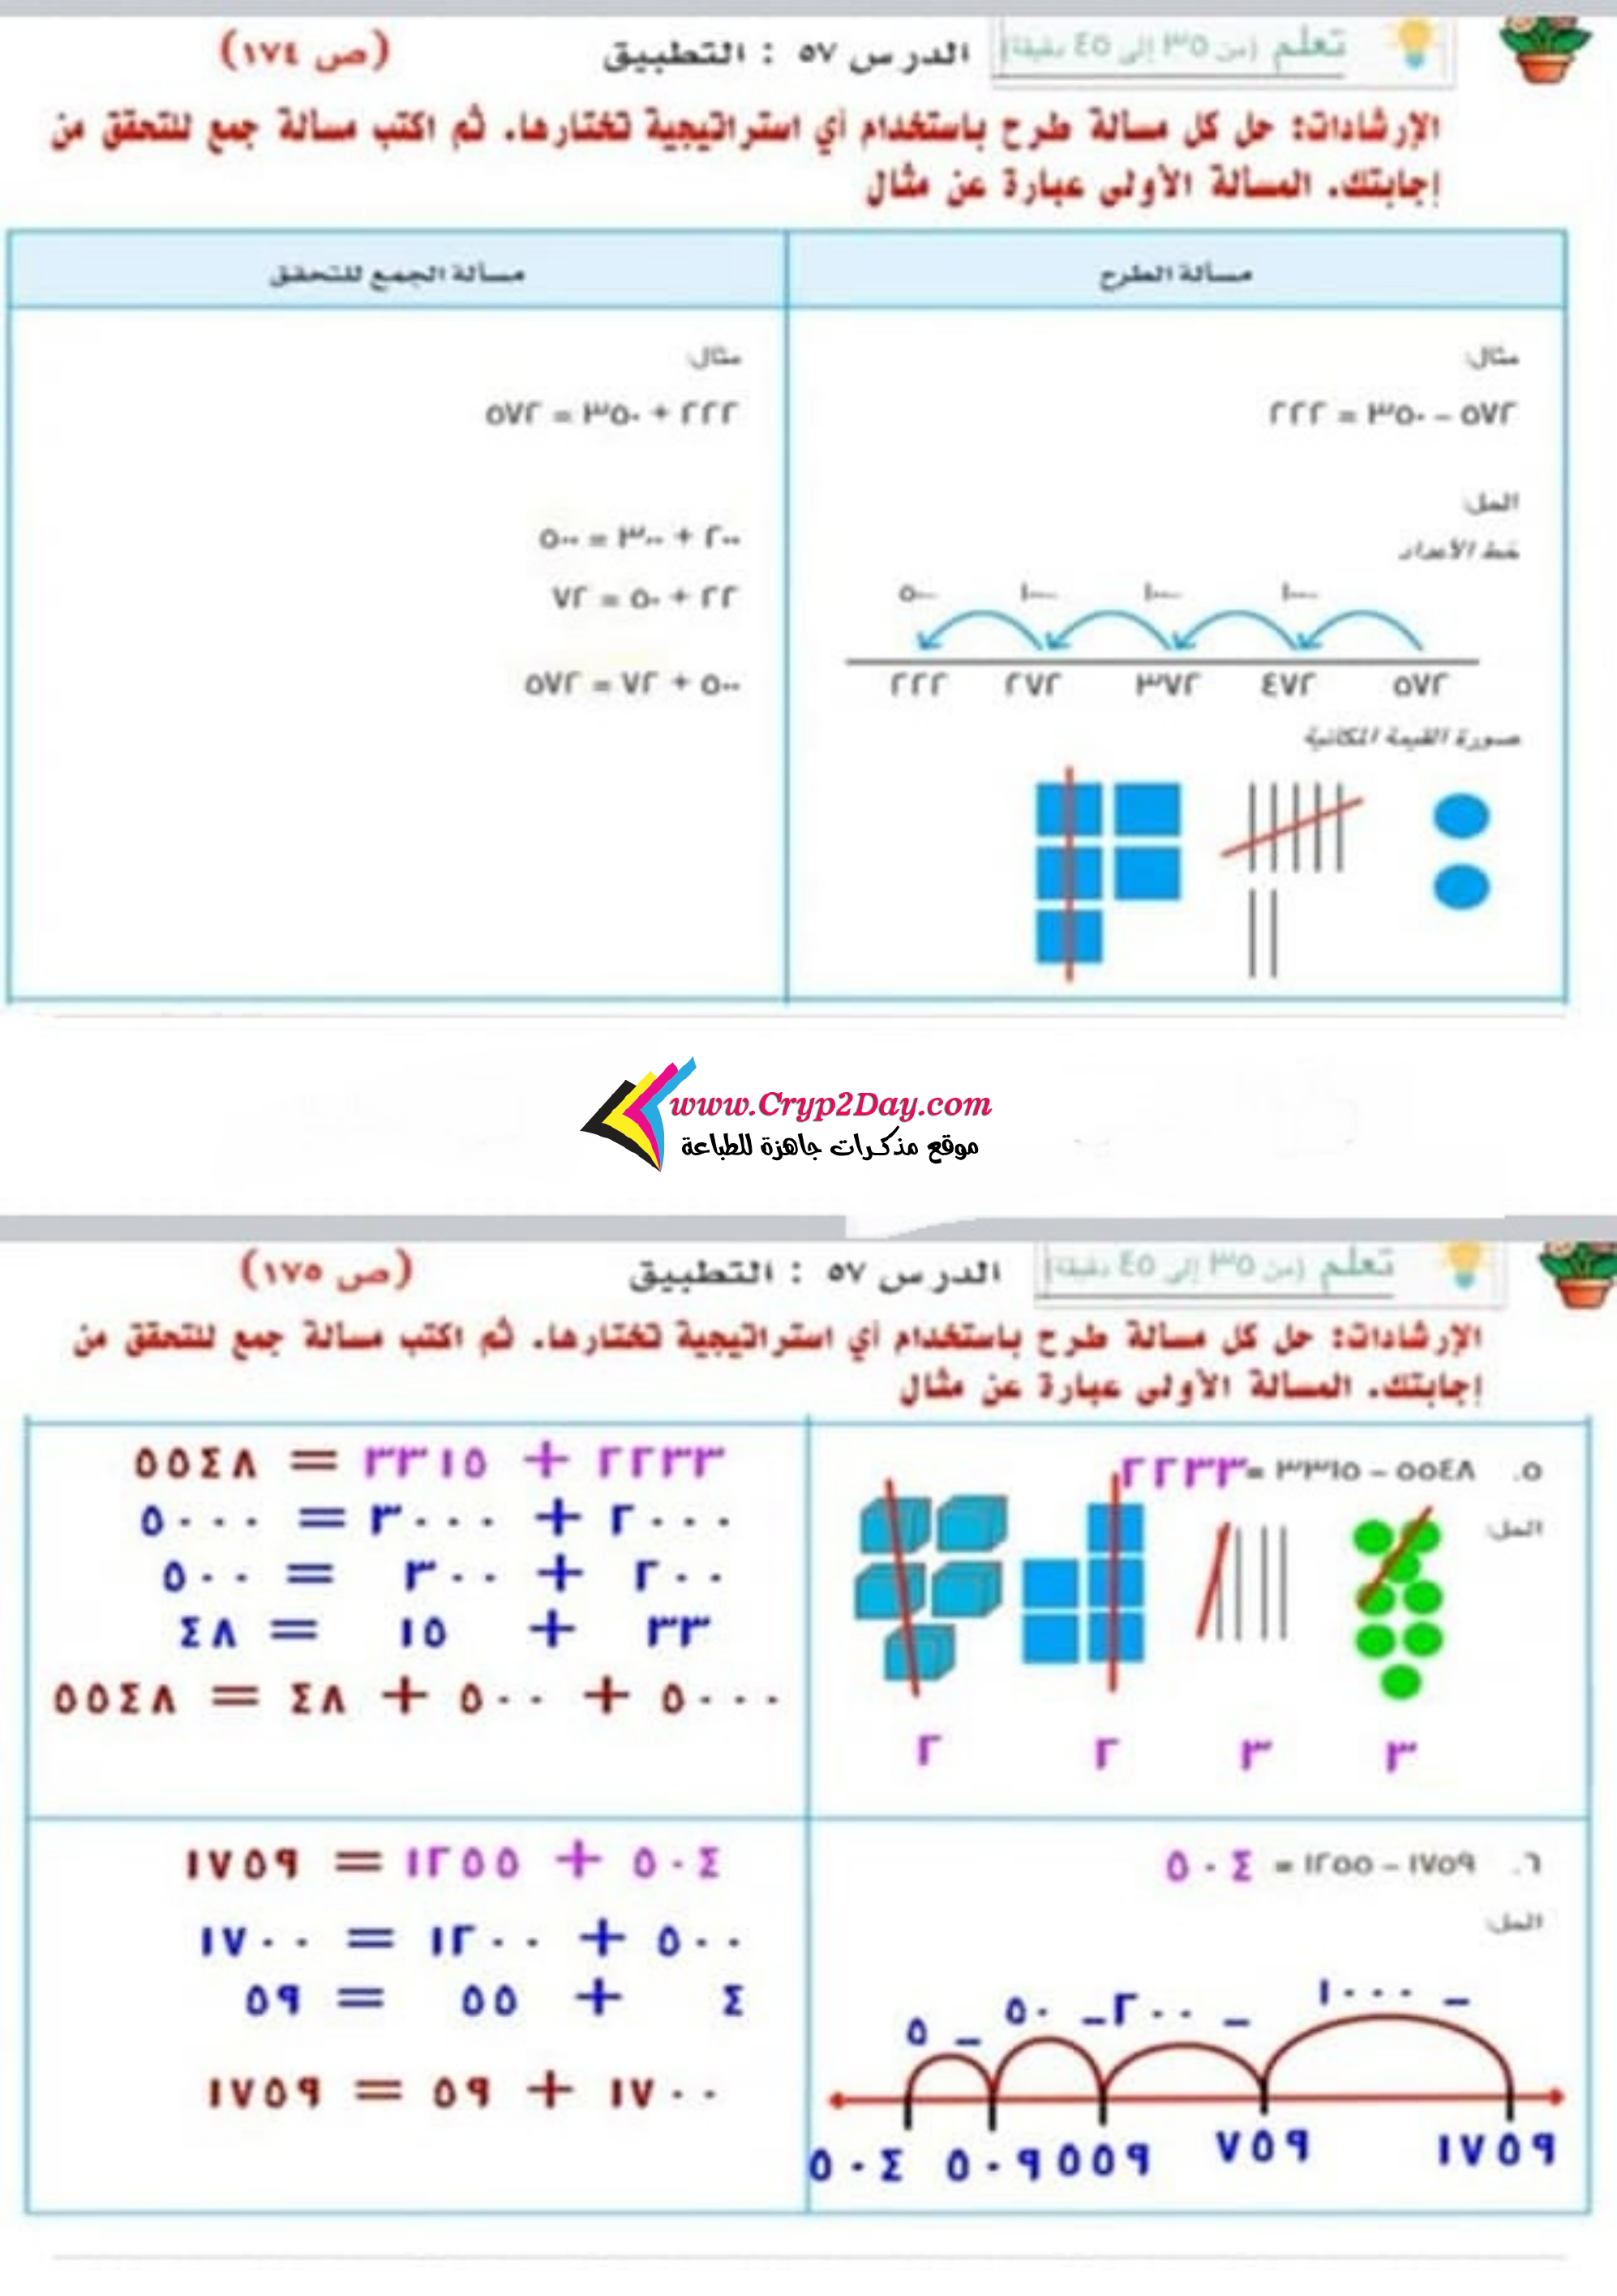 تعلم (من ٣٥ إلى ٤٥ دقيقة) الدرس ٥٧ : التطبيق (ص ١٧٤)
الإرشادات: حل كل مسألة طرح باستخدام أي استراتيجية تختارها. ثم اكتب مسألة جمع للتحقق من
إجابتك. المسألة الأولى عبارة عن مثال
مسألة الطرح
مثال:
٥٧٢ – ٣٥٠ = ٢٢٢
الحل:
خط الأعداد
١٠٠– ١٠٠– ١٠٠– ٥٠–
٥٧٢ ٤٧٢ ٣٧٢ ٢٧٢ ٢٢٢
صورة القيمة المكانية
مسألة الجمع للتحقق
مثال:
٢٢٢ + ٣٥٠ = ٥٧٢
٢٠٠ + ٣٠٠ = ٥٠٠
٢٢ + ٥٠ = ٧٢
٥٠٠ + ٧٢ = ٥٧٢
www.Cryp2Day.com
موقع مذكرات جاهزة للطباعة
تعلم (من ٣٥ إلى ٤٥ دقيقة) الدرس ٥٧ : التطبيق (ص ١٧٥)
الإرشادات: حل كل مسألة طرح باستخدام أي استراتيجية تختارها. ثم اكتب مسألة جمع للتحقق من
إجابتك. المسألة الأولى عبارة عن مثال
٥. ٥٥٤٨ – ٣٣١٥ = ٢٢٣٣
الحل:
٣ ٣ ٢ ٢
٢٢٣٣ + ٣٣١٥ = ٥٥٤٨
٢٠٠٠ + ٣٠٠٠ = ٥٠٠٠
٢٠٠ + ٣٠٠ = ٥٠٠
٣٣ + ١٥ = ٤٨
٥٠٠٠ + ٥٠٠ + ٤٨ = ٥٥٤٨
٦. ١٧٥٩ – ١٢٥٥ = ٥٠٤
الحل:
– ١٠٠٠ – ٢٠٠ – ٥٠ – ٥
١٧٥٩ ٧٥٩ ٥٥٩ ٥٠٩ ٥٠٤
٥٠٤ + ١٢٥٥ = ١٧٥٩
٥٠٠ + ١٢٠٠ = ١٧٠٠
٤ + ٥٥ = ٥٩
١٧٠٠ + ٥٩ = ١٧٥٩